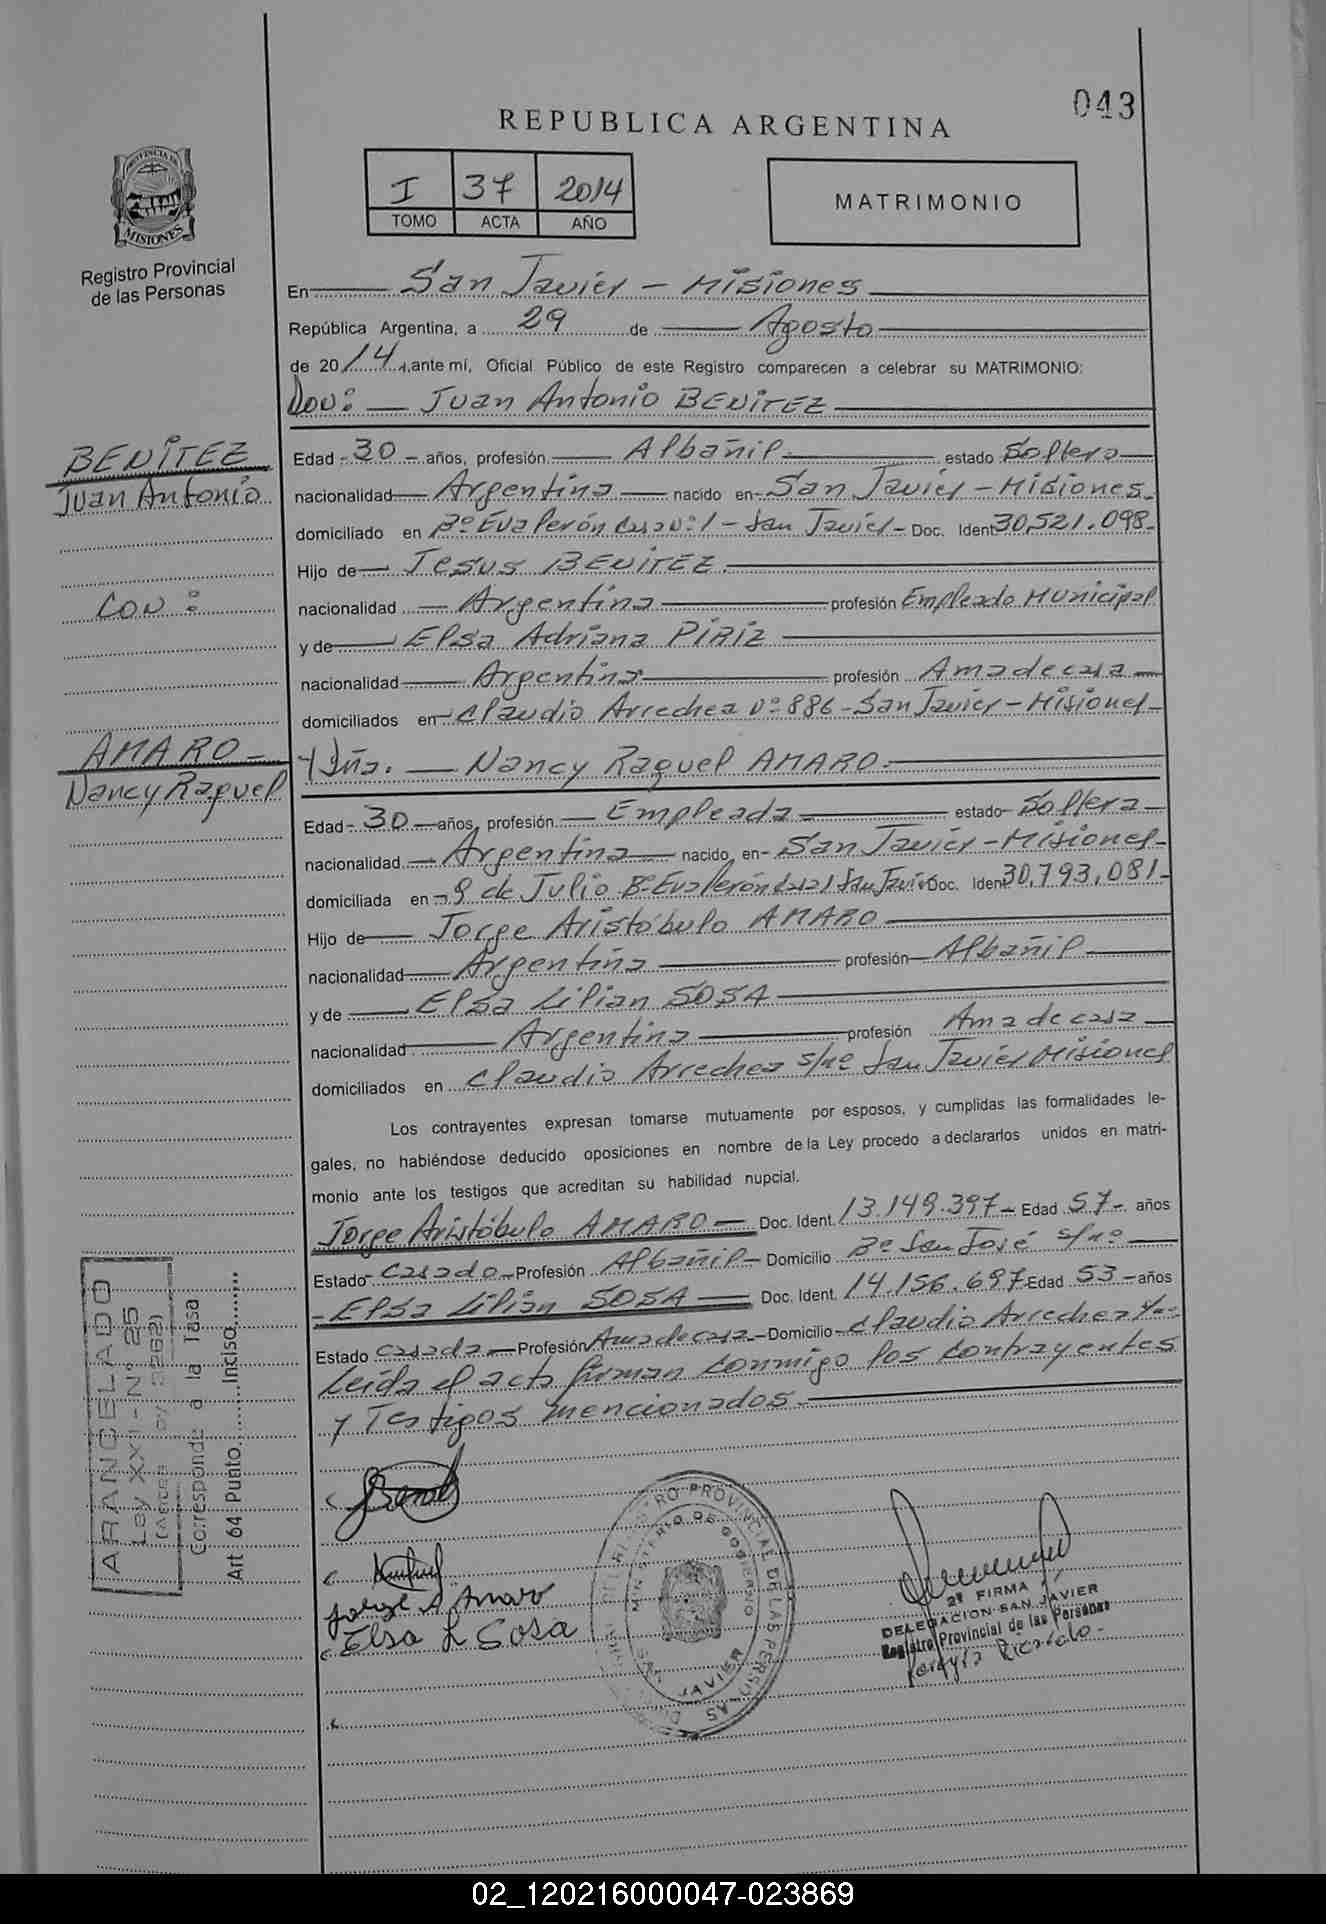 043
REPUBLICA ARGENTINA
I 37 2014
TOMO ACTA AÑO
MATRIMONIO
PROVINCIA DE
MISIONES
Registro Provincial
de las Personas
En San Javier - Misiones
República Argentina, a 29 de Agosto
de 2014, ante mí, Oficial Público de este Registro comparecen a celebrar su MATRIMONIO:
Don: Juan Antonio BENITEZ
BENITEZ
Juan Antonio
CON:
AMARO -
Nancy Raquel
Edad - 30 - años, profesión Albañil estado Soltero
nacionalidad Argentina nacido en San Javier - Misiones -
domiciliado en Bº Eva Perón Casa Nº 1 - San Javier - Doc. Ident 30,521.098 -
Hijo de Jesus BENITEZ
nacionalidad Argentina profesión Empleado Municipal
y de Elsa Adriana PIRIZ
nacionalidad Argentina profesión Ama de casa
domiciliados en Claudio Arrechea Nº 886 - San Javier - Misiones -
Y Dña. Nancy Raquel AMARO.
Edad - 30 - años, profesión Empleada estado Soltera
nacionalidad Argentina nacido en San Javier - Misiones -
domiciliada en 9 de Julio Bº Eva Perón Casa 1 San Javier Doc. Ident 30,793,081 -
Hijo de Jorge Aristóbulo AMARO
nacionalidad Argentina profesión Albañil
y de Elsa Lilian SOSA
nacionalidad Argentina profesión Ama de casa
domiciliados en Claudio Arrechea s/nº San Javier Misiones
Los contrayentes expresan tomarse mutuamente por esposos, y cumplidas las formalidades le-
gales, no habiéndose deducido oposiciones en nombre de la Ley procedo a declararlos unidos en matri-
monio ante los testigos que acreditan su habilidad nupcial.
Jorge Aristóbulo AMARO - Doc. Ident. 13.149.397 - Edad 57 - años
Estado Casado - Profesión Albañil - Domicilio Bº San José s/nº
- Elsa Lilian SOSA - Doc. Ident. 14.156.697 Edad 53 - años
Estado Casada - Profesión Ama de casa - Domicilio - Claudio Arrechea
Leída el acta firman conmigo los contrayentes
y Testigos mencionados.
ARANCELADO
Ley XXI - Nº 25
Corresponde a la Tasa
Art 64 Punto.......Inciso.......
Jorge A Amaro
Elsa L Sosa
REGISTRO PROVINCIAL DE LAS PERSONAS
MINISTERIO DE GOBIERNO
SAN JAVIER
2ª FIRMA
DELEGACION SAN JAVIER
Registro Provincial de las Personas
02_120216000047-023869